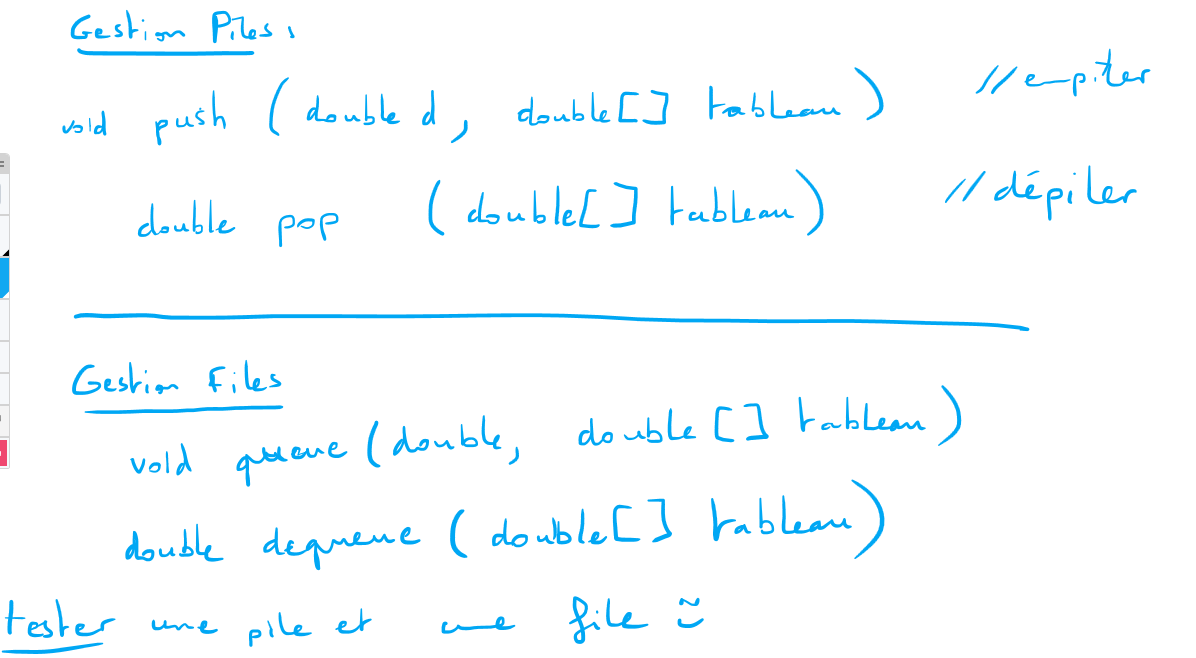 Gestion Piles:
void push (double d, double[] tableau) //empiler
double pop (double[] tableau) //dépiler
Gestion Files
void queue (double, double[] tableau)
double dequeue (double[] tableau)
tester une pile et une file